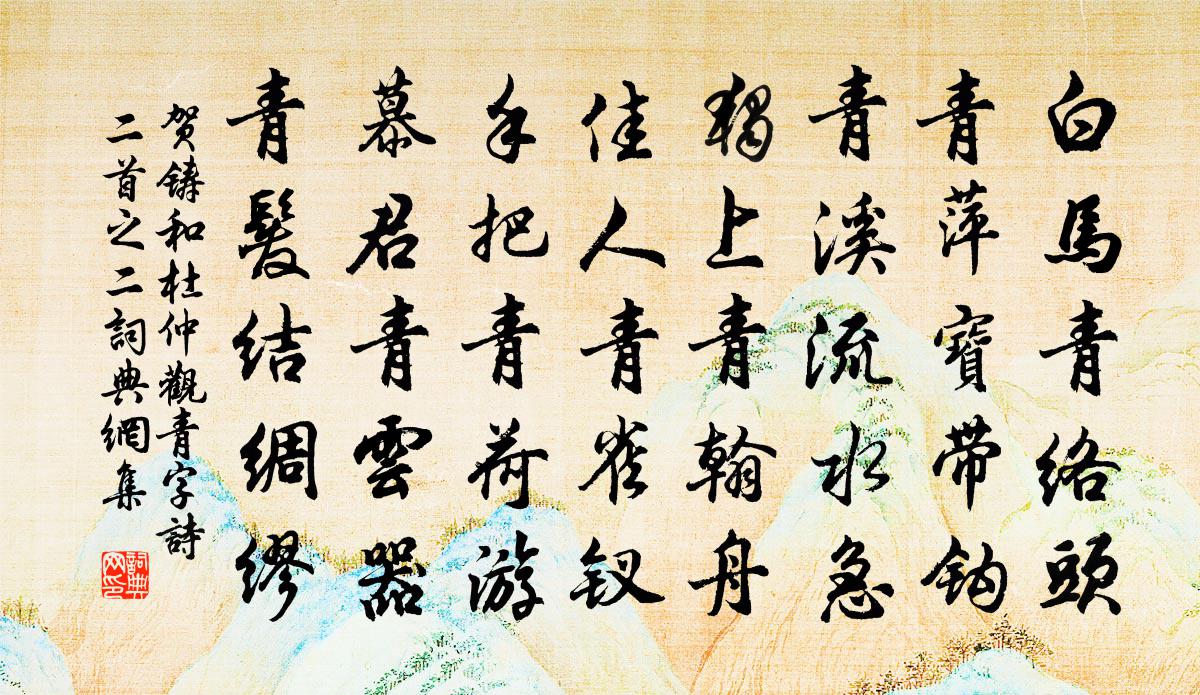 白馬青絡頭
青萍寶帶鈎
青溪流水急
獨上青翰舟
佳人青雀釵
手把青荷游
慕君青雲器
青髮結綢繆
贺鑄和杜仲觀青字詩
二首之二詞典網集
詞典
网印